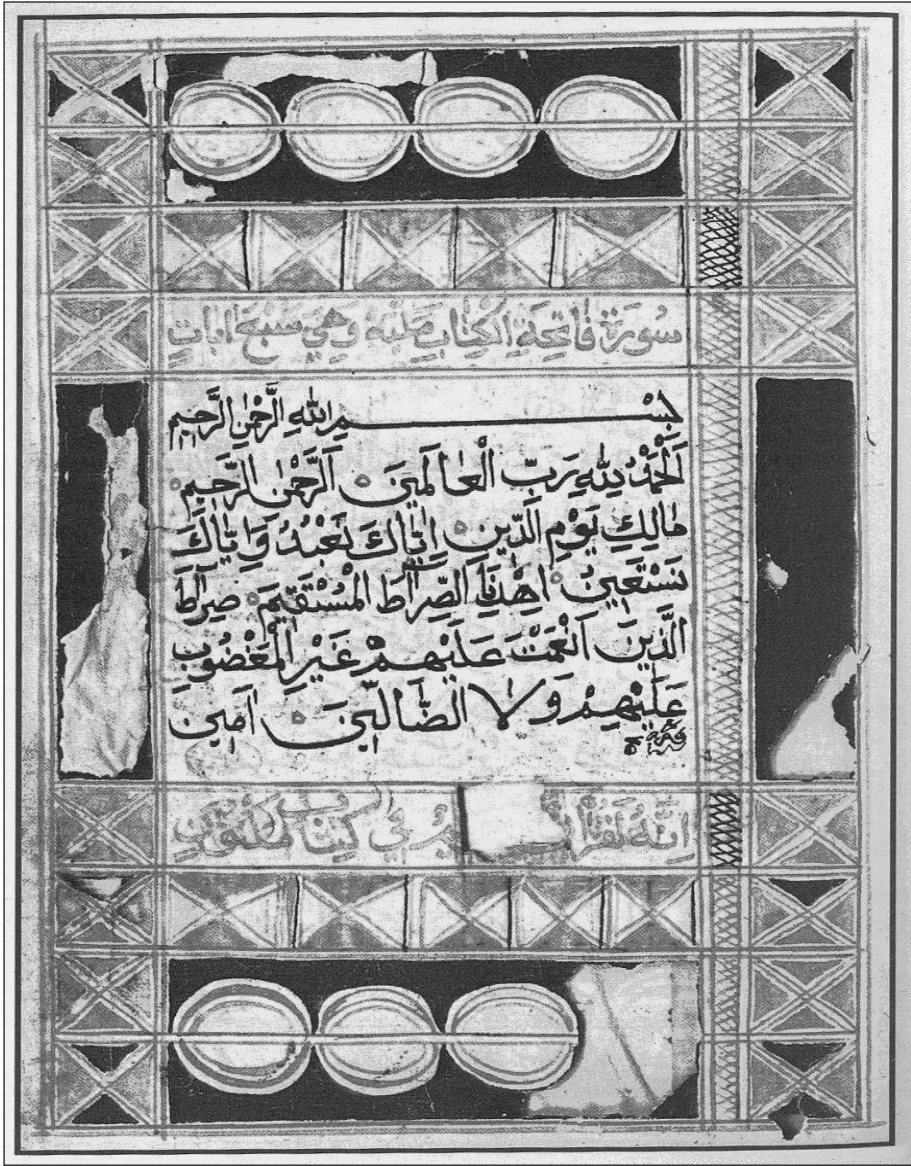 سُورَة فَاتِحَةِ الْكِتَابِ مَكِّيَّة وَهِيَ سَبْعَ ايَاتٍ
بِسْمِ اللّٰهِ الرَّحْمٰنِ الرَّحِيمِ
اَلْحَمْدُ لِلّٰهِ رَبِّ الْعَالَمِينَ اَلرَّحْمٰنِ الرَّحِيمِ
مَالِكِ يَوْمِ الدِّينِ اِيَّاكَ نَعْبُدُ وَاِيَّاكَ
نَسْتَعِينُ اِهْدِنَا الصِّرَاطَ الْمُسْتَقِيمَ صِرَاطَ
الَّذِينَ اَنْعَمْتَ عَلَيْهِمْ غَيْرِ الْمَغْضُوبِ
عَلَيْهِمْ وَلَا الضَّالِّينَ آمِين
اِنَّهُ لَقُرْآنٌ فِي كِتَابٍ مَكْنُونٍ